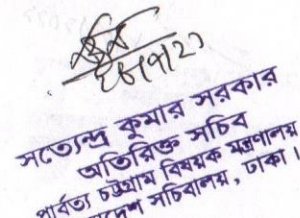 সত্যেন্দ্র কুমার সরকার
অতিরিক্ত সচিব
পার্বত্য চট্টগ্রাম বিষয়ক মন্ত্রণালয়
সচিবালয়, ঢাকা।